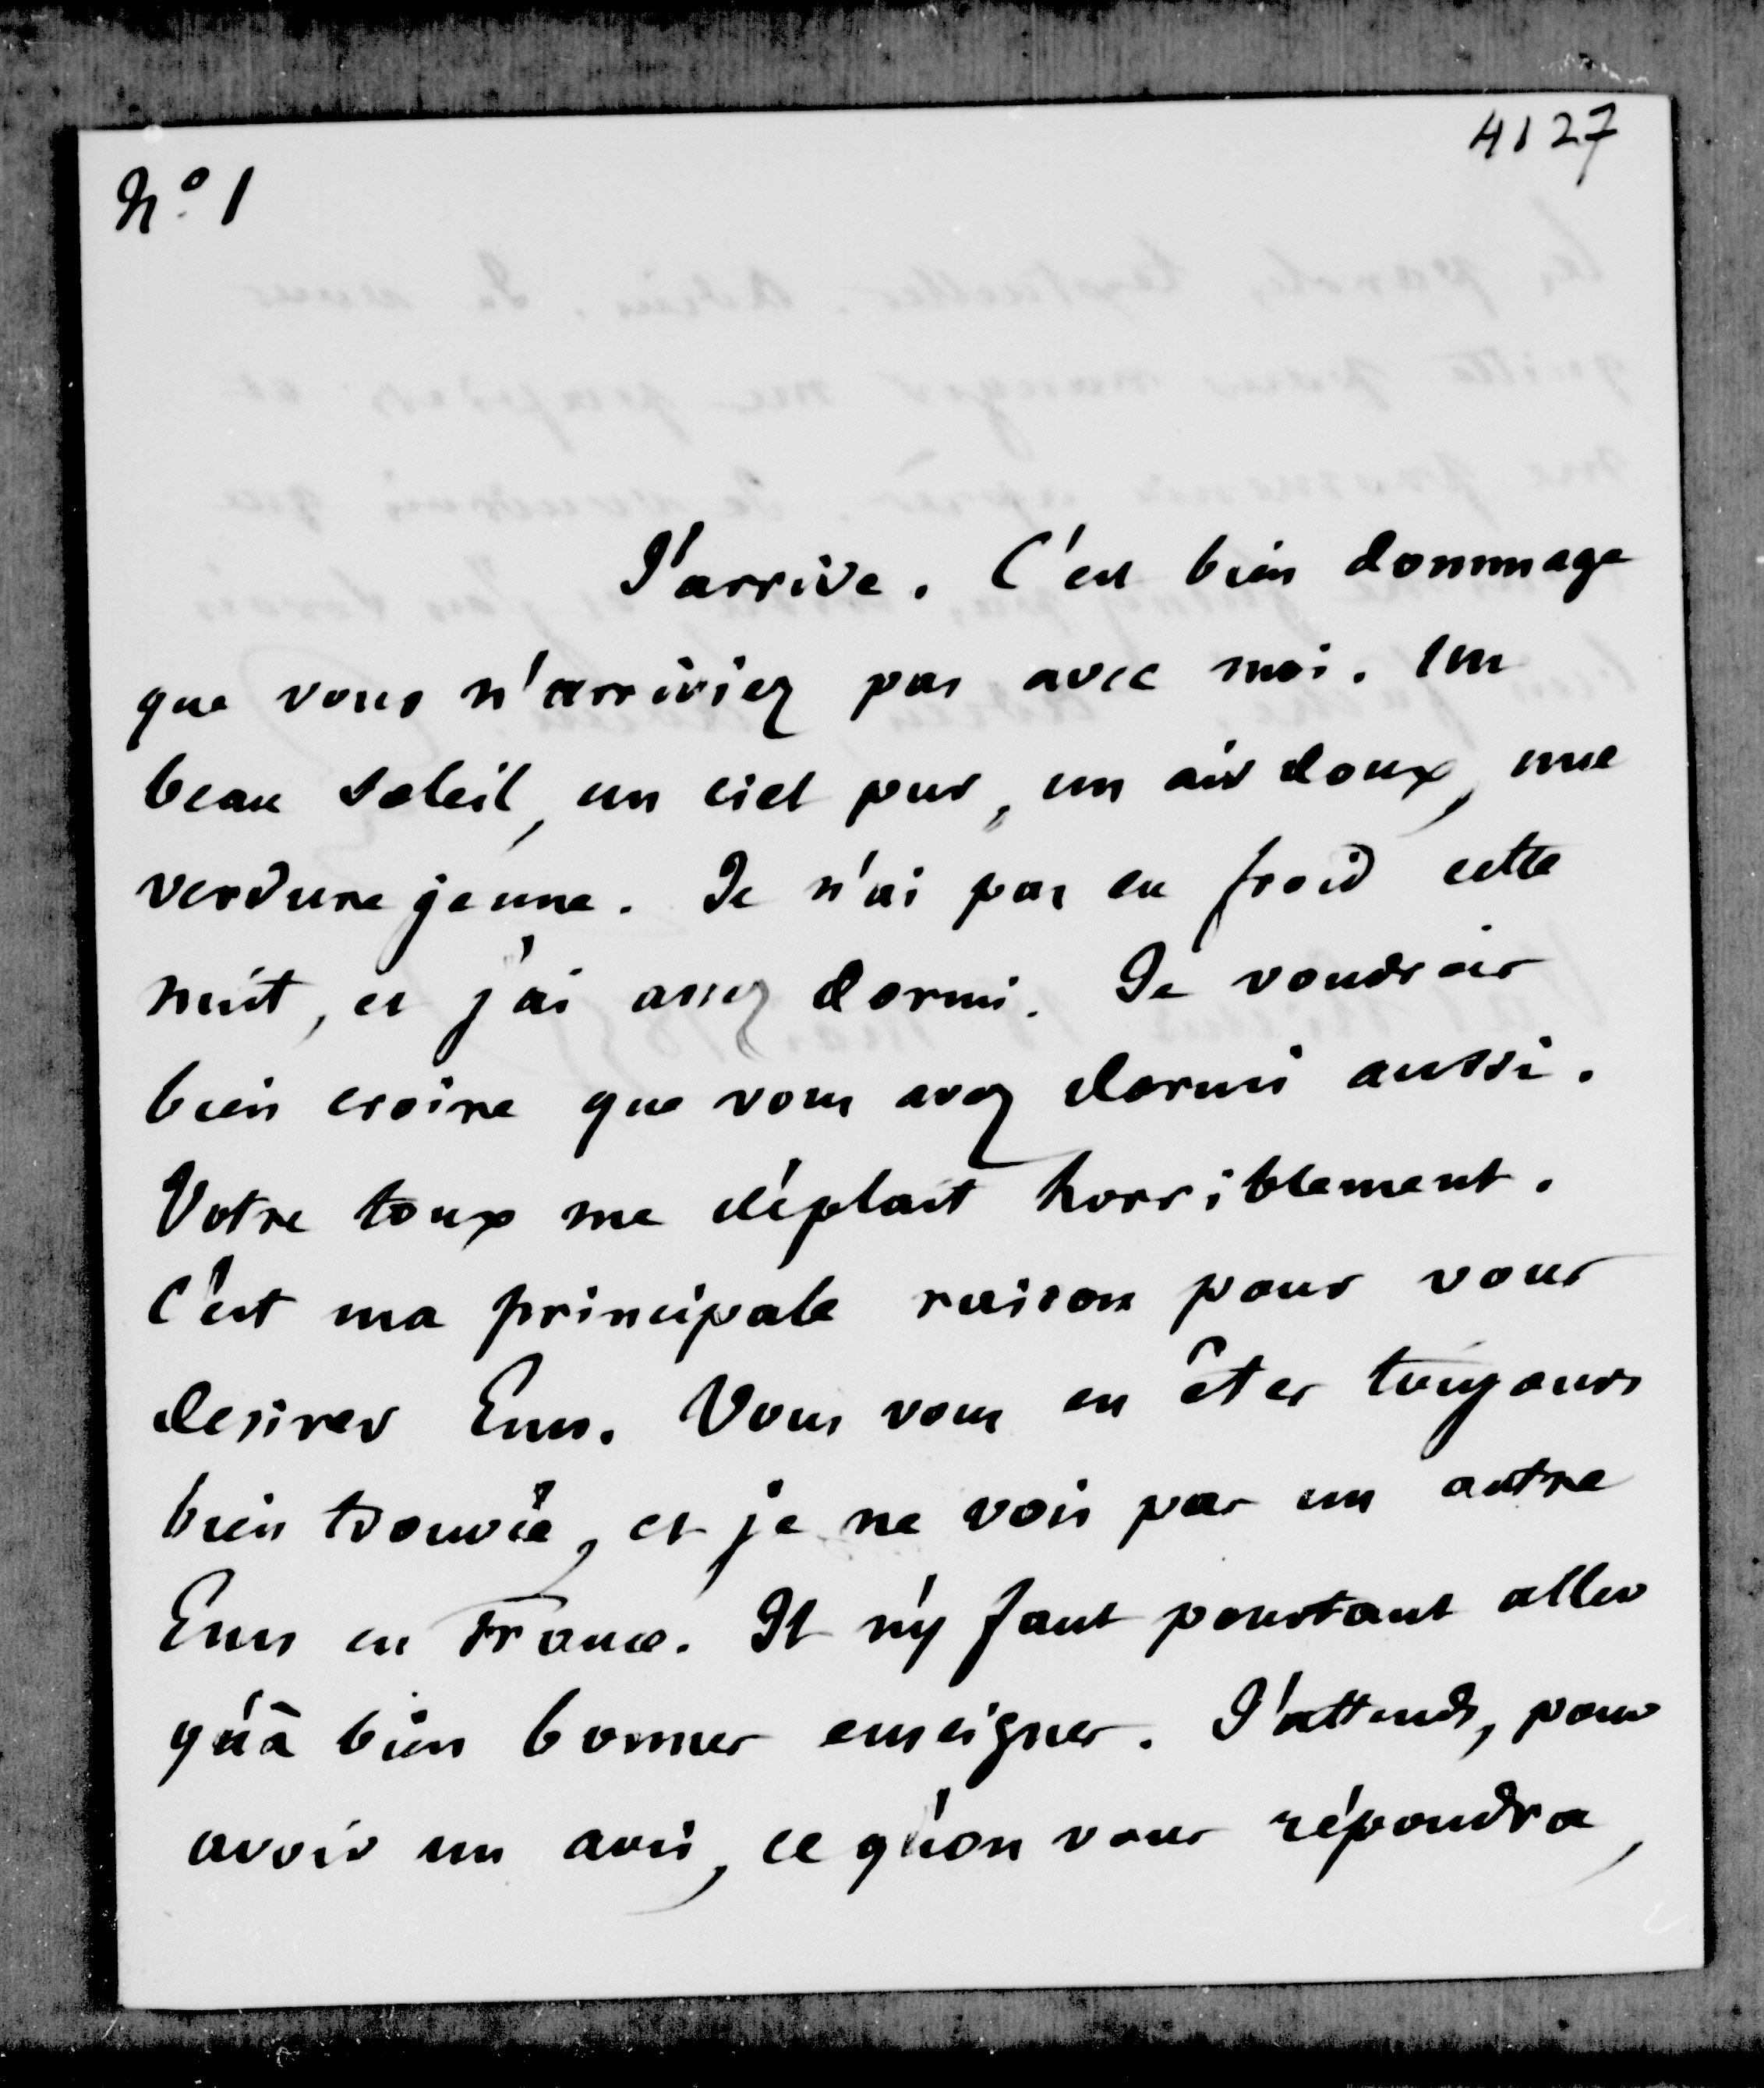 4127
N° 1
J'arrive. C'est bien dommage
que vous n'arriviez pas avec moi. Un
beau soleil, un ciel pur, un air doux, une
verdure jeune. Je n'ai pas eu froid cette
nuit, et j'ai assez dormi. Je voudrais
bien croire que vous avez dormi aussi.
Votre toux me déplait horriblement.
C'est ma principale raison pour vous
desirer Ems. Vous vous en êtes toujours
bien trouvée, et je ne vois pas un autre
Ems en France. Il n'y faut pourtant aller
qu'à bien bonnes enseignes. J'attends, pour
avoir un avis, ce qu'on vous répondra,